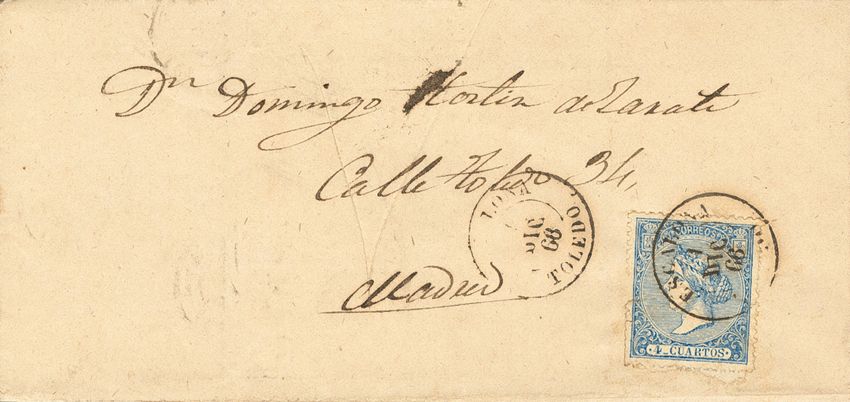 Dn Domingo Martin de Zarate
Calle Toledo 34,
Madrid
LONA
DIC
66
TOLEDO
CORREOS
ESCALONA
1
DIC
66
4 CUARTOS